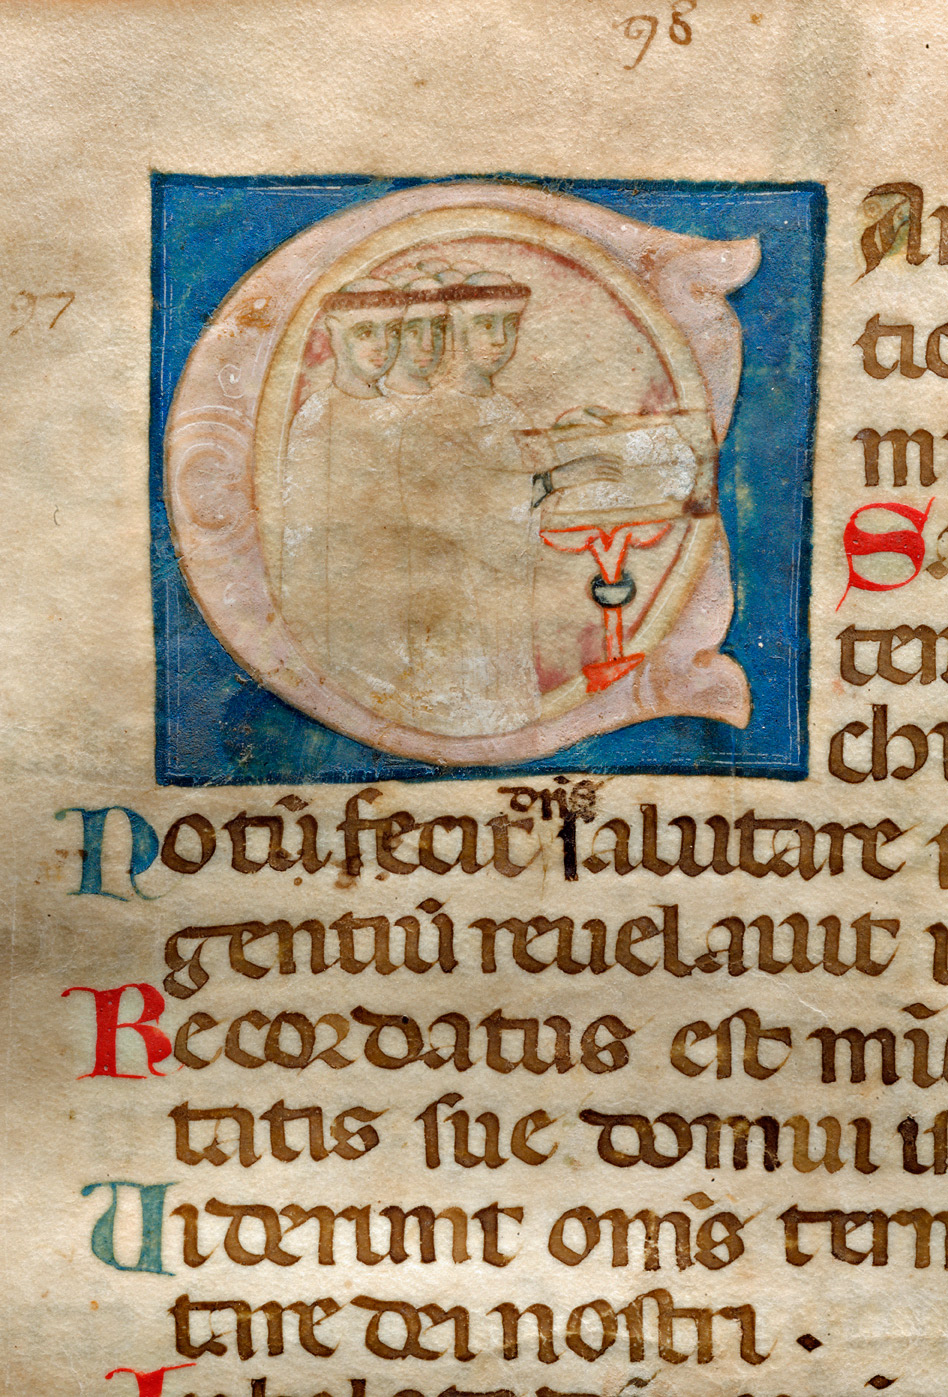 98
An
97
tic
m
S
ten
chr
Notū fecit dn̄s salutare
gentiū reuelauit
Recordatus est mīs
tatis sue domui is
Uiderunt om̄s terr
tare dei nostri.